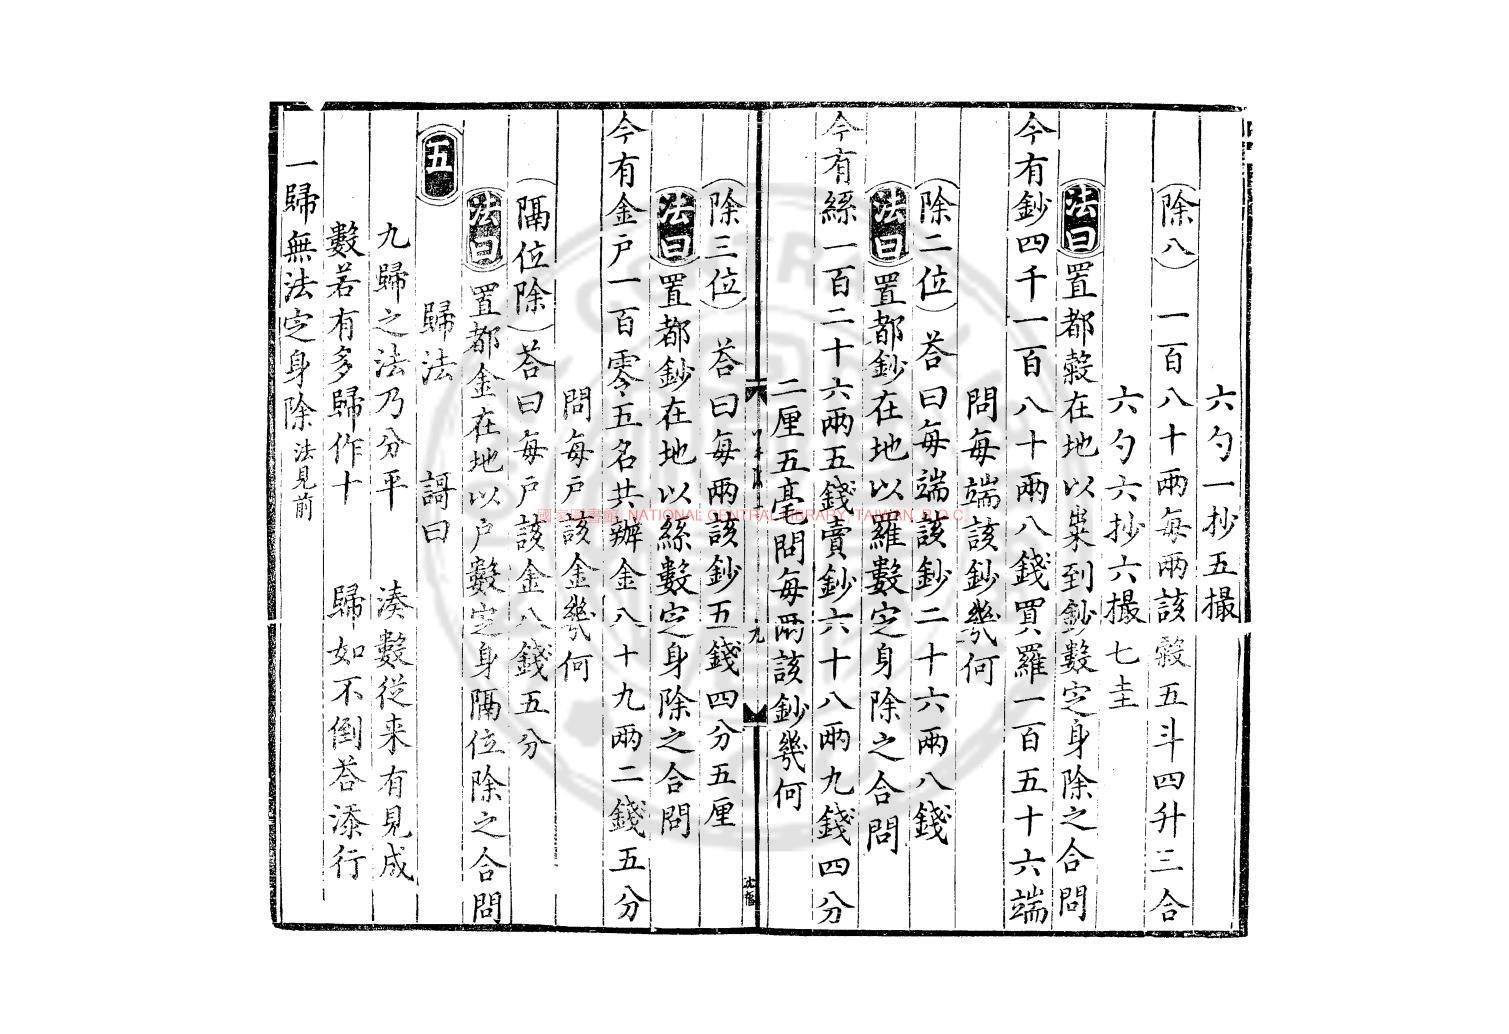 六勺一抄五撮
除八 一百八十兩每兩該穀五斗四升三合
六勺六抄六撮七圭
法曰 置都穀在地以到鈔數定身除之合問
今有鈔四千一百八十兩八錢買羅一百五十六端
問每端該鈔幾何
除二位 荅曰每端該鈔二十六兩八錢
法曰 置都鈔在地以羅數定身除之合問
今有絲一百二十六兩五錢賣鈔六十八兩九錢四分
二厘五毫問每兩該鈔幾何
九
除三位 荅曰每兩該鈔五錢四分五厘
法曰 置都鈔在地以絲數定身除之合問
今有金户一百零五名共辦金八十九兩二錢五分
問每户該金幾何
隔位除 荅曰每户該金八錢五分
法曰 置都金在地以户數定身隔位除之合問
五 歸法 謌曰
九歸之法乃分平 湊數從来有見成
數若有多歸作十 歸如不倒荅添行
一歸無法定身除 法見前
國家圖書館 NATIONAL CENTRAL LIBRARY, TAIWAN, R.O.C.